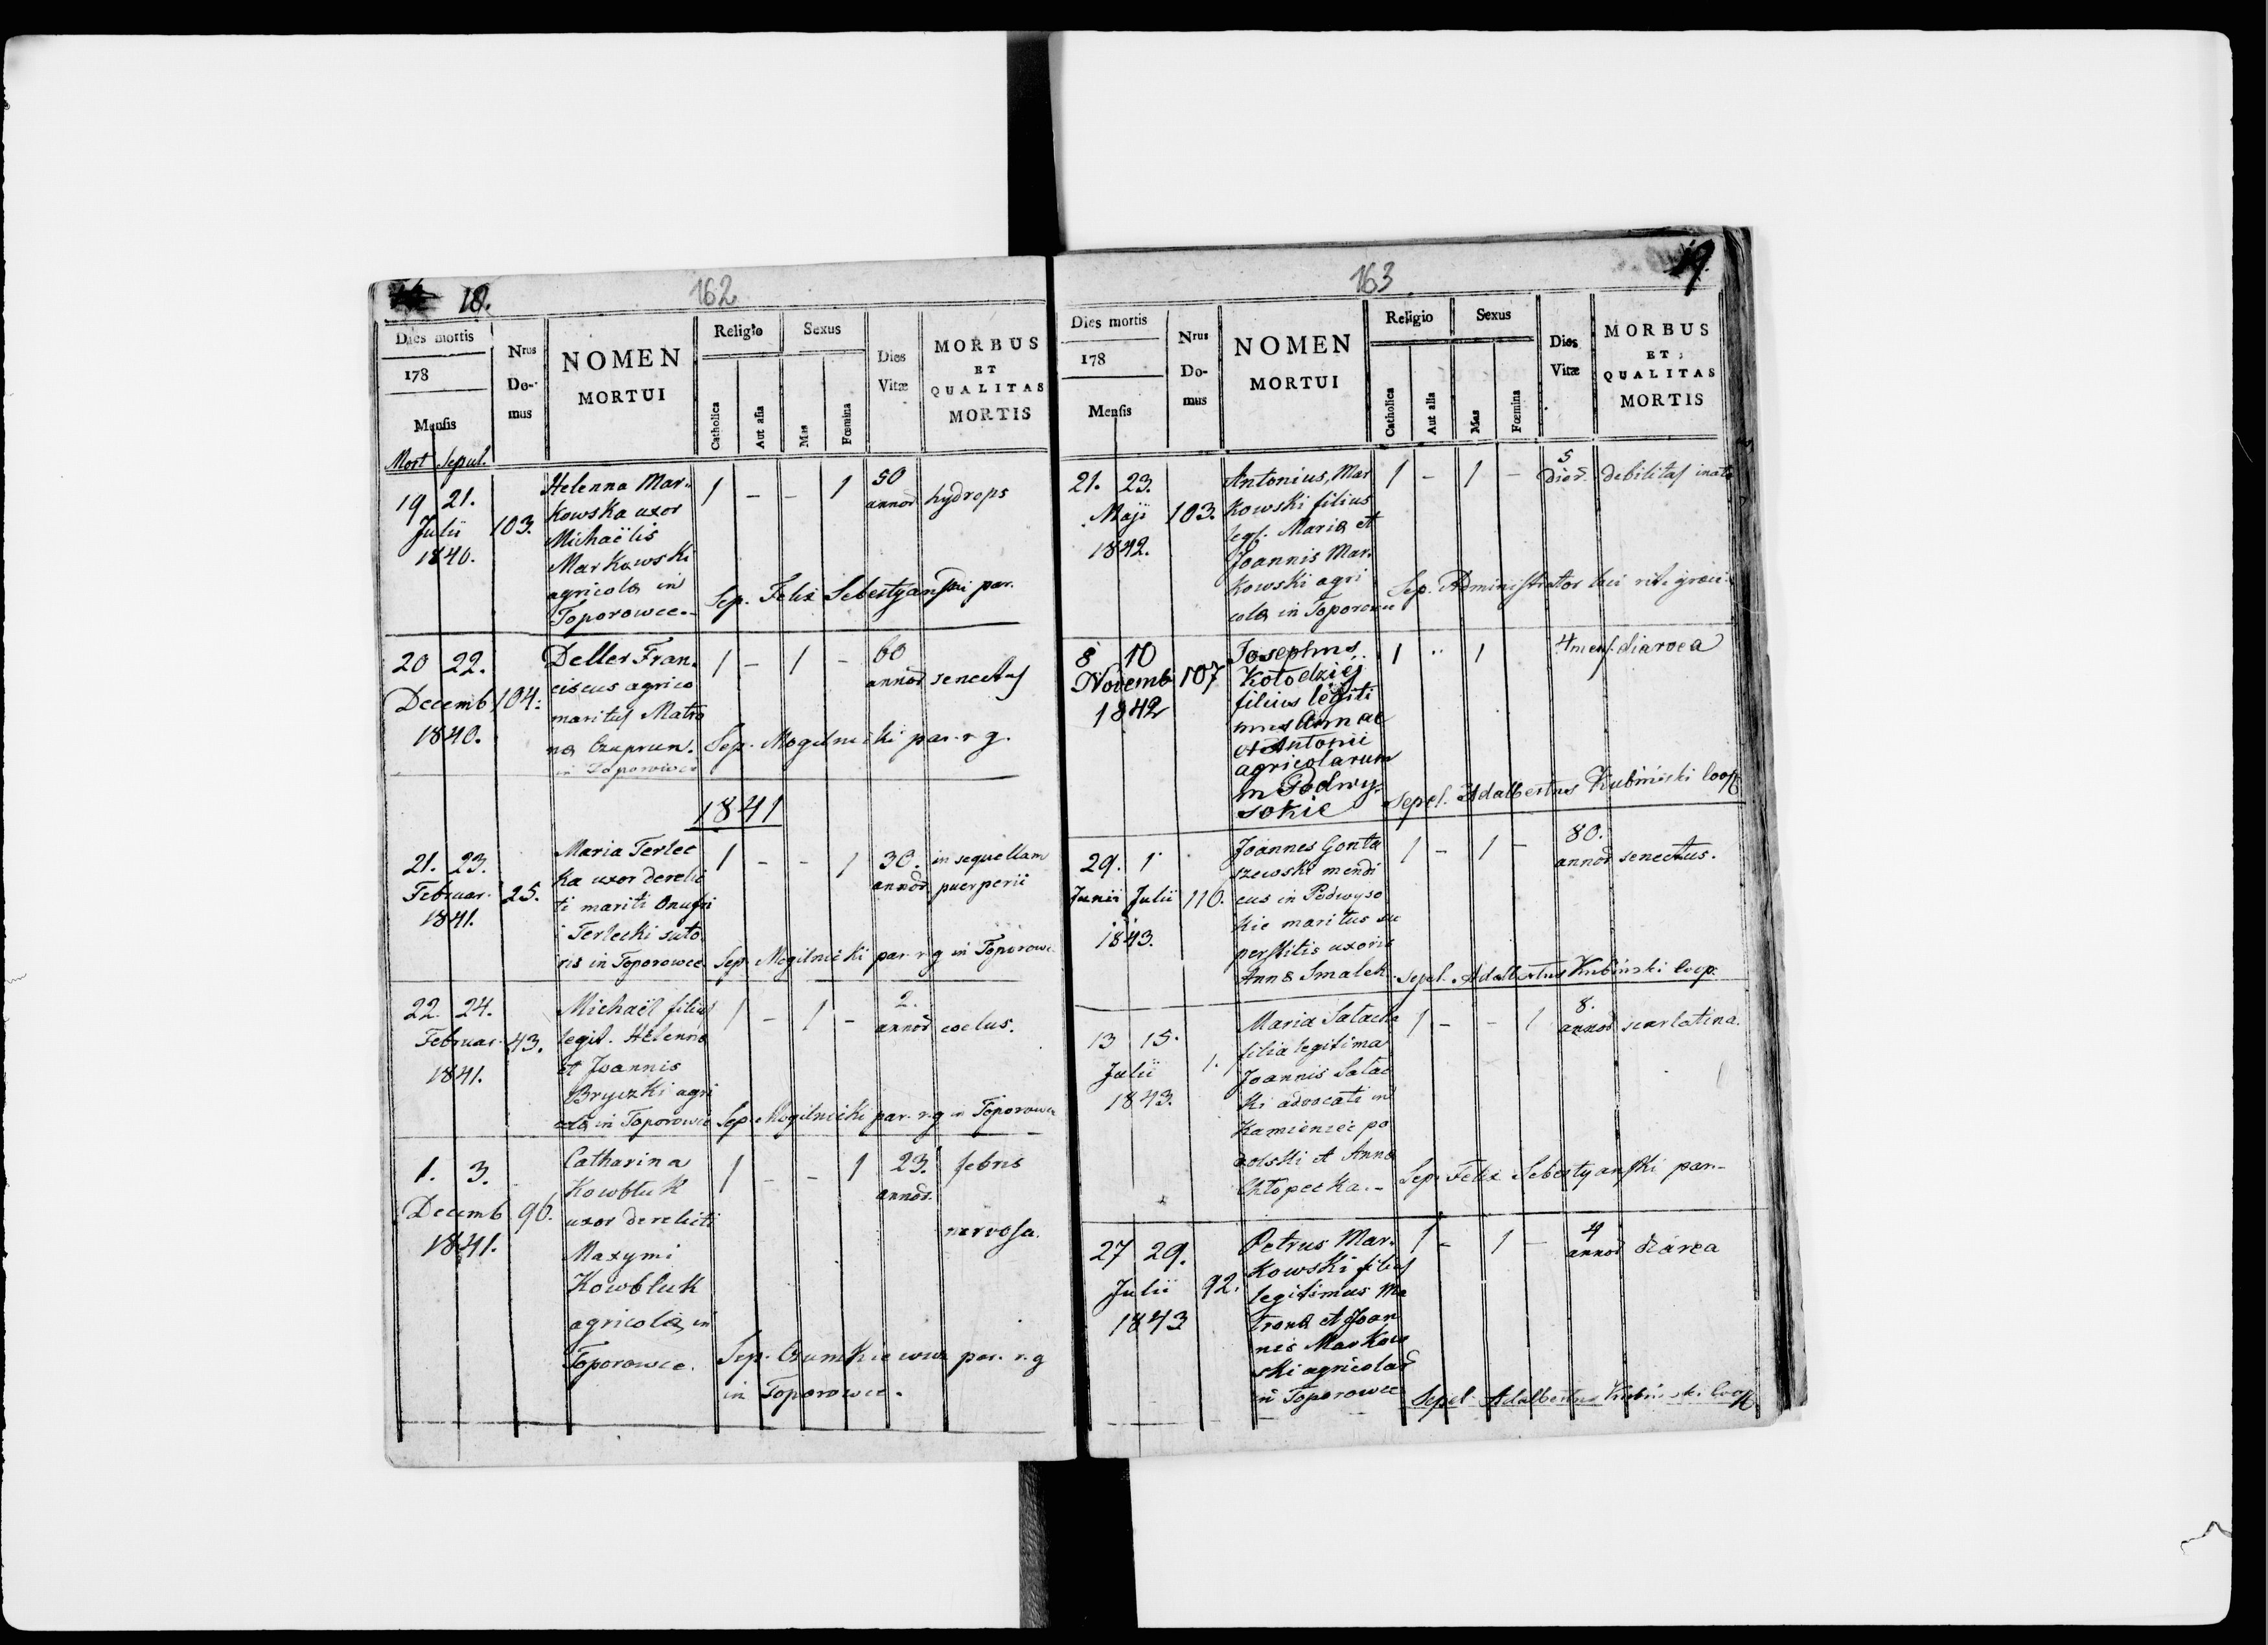 18.
162
Dies mortis
178
Mensis
Nrus
Do-
mus
NOMEN
MORTUI
Religio
Catholica
Aut alia
Sexus
Mas
Fœmina
Dies
Vitæ
MORBUS
ET
QUALITAS
MORTIS
Mort Sepul.
19 21.
Julii
1840.
103.
Helenna Mar-
kowska uxor
Michaëlis
Markowski
agricola in
Toporowce.-
1 - - 1
50
annor
hydrops
Sep. Felix Sebestyanski par.
20 22.
Decemb
1840.
104.
Deller Fran-
ciscus agrico
maritus Matro
na Czuprun.
in Toporowce
1 - 1 -
60
annor
senectus
Sep. Mogilnicki par. r. g.
1841
21. 23.
Februar.
1841.
25.
Maria Terlec
ka uxor derelic
ti mariti Onufri
i Terlecki suto
ris in Toporowce.
1 - - 1
30.
annor
in sequellam
puerperii
Sep. Mogilnicki par. r. g in Toporowce
22. 24.
Februar.
1841.
43.
Michaël filius
legit. Helenna
et Joannis
Bryczki agri
cola in Toporowce
1 - 1 -
2.
annor
Sep. Mogilnicki par. r. g in Toporowce
1. 3.
Decemb
1841.
96.
Catharina
Kowbluk
uxor derelicti
Maxymi
Kowbluk
agricola in
Toporowce.
1 - - 1
23.
annor.
febris
nervosa.
Sep. par. r. g
in Toporowce.
19.
163
Dies mortis
178
Mensis
Nrus
Do-
mus
NOMEN
MORTUI
Religio
Catholica
Aut alia
Sexus
Mas
Fœmina
Dies
Vitæ
MORBUS
ET
QUALITAS
MORTIS
21. 23.
Maji
1842.
103.
Antonius Mar
kowski filius
leg. Maria et
Joannis Mar-
kowski agri
cola in Toporowce
1 - 1 -
5
dier.
debilitas inata
Sep. Administrator loci rit. græci
8 10
Novemb
1842
107
Josephus
Kołodziéj
filius legiti
mus Annae
et Antonii
agricolarum
in Podwy-
sokie
1 1
4 mens.
diaroea
Sepel. Adalbertus Kubiński Coop
29. 1
Junii Julii
1843.
110.
Joannes Gonta
szewski mendi
cus in Podwyso
kie maritus su
perstitis uxoris
Anna Smalek.
1 - 1 -
80.
annor
senectus.
Sepel. Adalbertus Kubinski Coop.
13 15.
Julii
1843.
1.
Maria Satacka
filia legitima
Joannis Satac
ki advocati in
Kamieniec po
dolski et Anna
Chłopecka.-
1 - - 1
8.
annor
scarlatina.
Sep. Felix Sebestyanski par.-
27 29.
Julii
1843
92.
Petrus Mar-
kowski filius
legitimus Ma
trona et Joan
nis Markow
ski agricolar
in Toporowce
1 - 1 -
4
annor
diarea
Sepel. Adalbertus Kubinski Coop